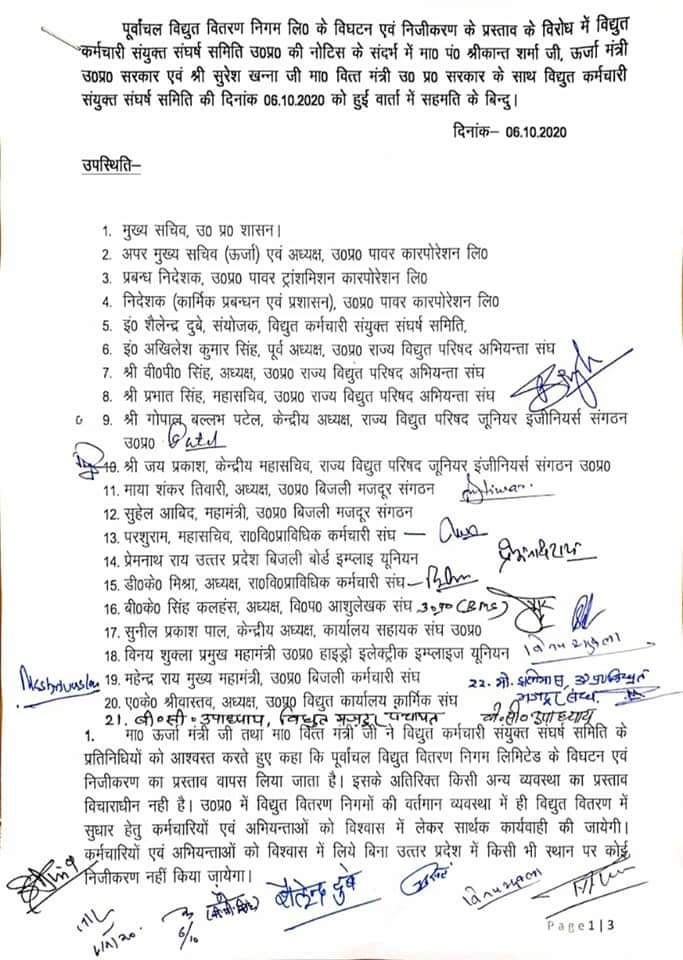 पूर्वांचल विद्युत वितरण निगम लि0 के विघटन एवं निजीकरण के प्रस्ताव के विरोध में विद्युत
कर्मचारी संयुक्त संघर्ष समिति उ0प्र0 की नोटिस के संदर्भ में मा0 पं0 श्रीकान्त शर्मा जी, ऊर्जा मंत्री
उ0प्र0 सरकार एवं श्री सुरेश खन्ना जी मा0 वित्त मंत्री उ0 प्र0 सरकार के साथ विद्युत कर्मचारी
संयुक्त संघर्ष समिति की दिनांक 06.10.2020 को हुई वार्ता में सहमति के बिन्दु।
दिनांक– 06.10.2020
उपस्थिति–
1. मुख्य सचिव, उ0 प्र0 शासन।
2. अपर मुख्य सचिव (ऊर्जा) एवं अध्यक्ष, उ0प्र0 पावर कारपोरेशन लि0
3. प्रबन्ध निदेशक, उ0प्र0 पावर ट्रांशमिशन कारपोरेशन लि0
4. निदेशक (कार्मिक प्रबन्धन एवं प्रशासन), उ0प्र0 पावर कारपोरेशन लि0
5. इं0 शैलेन्द्र दुबे, संयोजक, विद्युत कर्मचारी संयुक्त संघर्ष समिति,
6. इं0 अखिलेश कुमार सिंह, पूर्व अध्यक्ष, उ0प्र0 राज्य विद्युत परिषद अभियन्ता संघ
7. श्री वी0पी0 सिंह, अध्यक्ष, उ0प्र0 राज्य विद्युत परिषद अभियन्ता संघ
8. श्री प्रभात सिंह, महासचिव, उ0प्र0 राज्य विद्युत परिषद अभियन्ता संघ
9. श्री गोपाल बल्लभ पटेल, केन्द्रीय अध्यक्ष, राज्य विद्युत परिषद जूनियर इंजीनियर्स संगठन
उ0प्र0 Patel
10. श्री जय प्रकाश, केन्द्रीय महासचिव, राज्य विद्युत परिषद जूनियर इंजीनियर्स संगठन उ0प्र0
11. माया शंकर तिवारी, अध्यक्ष, उ0प्र0 बिजली मजदूर संगठन
12. सुहेल आबिद, महामंत्री, उ0प्र0 बिजली मजदूर संगठन
13. परशुराम, महासचिव, रा0वि0प्राविधिक कर्मचारी संघ
14. प्रेमनाथ राय उत्तर प्रदेश बिजली बोर्ड इम्प्लाइ यूनियन प्रेमनाथ राय
15. डी0के0 मिश्रा, अध्यक्ष, रा0वि0प्राविधिक कर्मचारी संघ
16. बी0के0 सिंह कलहंस, अध्यक्ष, वि0प0 आशुलेखक संघ उ०प्र० (BMS)
17. सुनील प्रकाश पाल, केन्द्रीय अध्यक्ष, कार्यालय सहायक संघ उ0प्र0
18. विनय शुक्ला प्रमुख महामंत्री उ0प्र0 हाइड्रो इलेक्ट्रीक इम्प्लाइज यूनियन विनय शुक्ला
19. महेन्द्र राय मुख्य महामंत्री, उ0प्र0 बिजली कर्मचारी संघ
20. ए0के0 श्रीवास्तव, अध्यक्ष, उ0प्र0 विद्युत कार्यालय कार्मिक संघ
22. मजदूर संघ
21. वी०सी० उपाध्याय, विद्युत मजदूर पंचायत वी०सी० उपाध्याय
1. मा0 ऊर्जा मंत्री जी तथा मा0 वित्त मंत्री जी ने विद्युत कर्मचारी संयुक्त संघर्ष समिति के
प्रतिनिधियों को आश्वस्त करते हुए कहा कि पूर्वांचल विद्युत वितरण निगम लिमिटेड के विघटन एवं
निजीकरण का प्रस्ताव वापस लिया जाता है। इसके अतिरिक्त किसी अन्य व्यवस्था का प्रस्ताव
विचाराधीन नही है। उ0प्र0 में विद्युत वितरण निगमों की वर्तमान व्यवस्था में ही विद्युत वितरण में
सुधार हेतु कर्मचारियों एवं अभियन्ताओं को विश्वास में लेकर सार्थक कार्यवाही की जायेगी।
कर्मचारियों एवं अभियन्ताओं को विश्वास में लिये बिना उत्तर प्रदेश में किसी भी स्थान पर कोई
निजीकरण नहीं किया जायेगा।
शैलेन्द्र दुबे विनय शुक्ला
6/10
Page 1|3